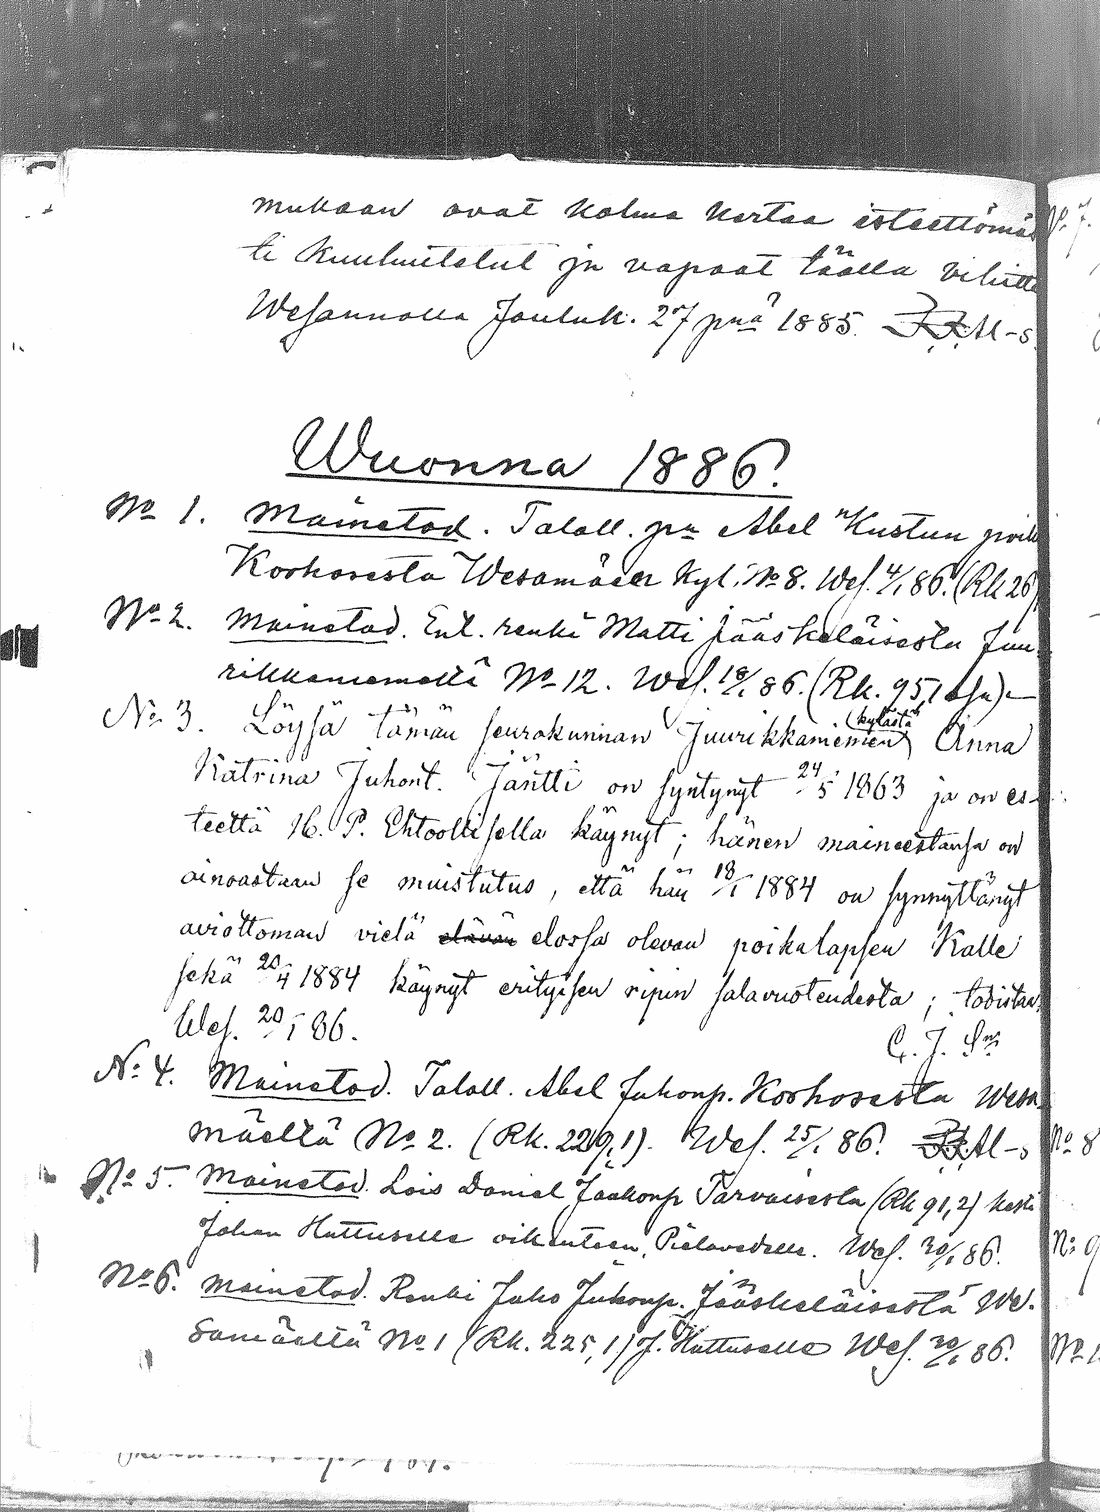 mukaan ovat kolme kertaa esteettömäs
ti kuulutetut ja vapaat täällä vihitt
Wesannolla Jouluk. 27 pnä 1885. Al-s.
Wuonna 1886.
No 1. Mainetod. Taloll. pa Abel Kustun poik
Korhosesta Wesamäen Kyl. No 8. Wes. 4/1 86. (Rk 26),
No 2. Mainetod. Ent. renki Matti Jääskeläisestä Juu-
rikkaniemeltä No 12. Wes. 18/1 86. (Rk. 95,
No 3. Löysä tämän seurakunnan Juurikkaniemen (kylästä) Anna
Katrina Juhont. Jäntti on syntynyt 24/5 1863 ja on es-
teettä H. P. Ehtoollisella käynyt; hänen maineestansa on
ainoastaan se muistutus, että hän 18/1 1884 on synnyttänyt
aviottoman vielä elävän elossa olevan poikalapsen Kalle
sekä 20/4 1884 käynyt erityisen ripin salavuoteudesta; todistaa,
Wes. 20/1 86.
C. J. Sns
No 4. Mainetod. Taloll. Abel Juhonp. Korhosesta Wesa-
mäeltä No 2. (Rk. 229,1). Wes. 25/1 86. Al-s
No 5. Mainetod. Lois Daniel Jaakonp Tarvaisesta (Rk 91,2)
Johan Huttuselle oikeuteen, Pielavedelle. Wes. 30/1 86.
No 6. Mainetod. Renki Juho Juhonp. Jääskeläisestä We-
samäeltä No 1 (Rk. 225,1) J. Huttuselle Wes. 30/1 86.
No 7.
No 8
No 9